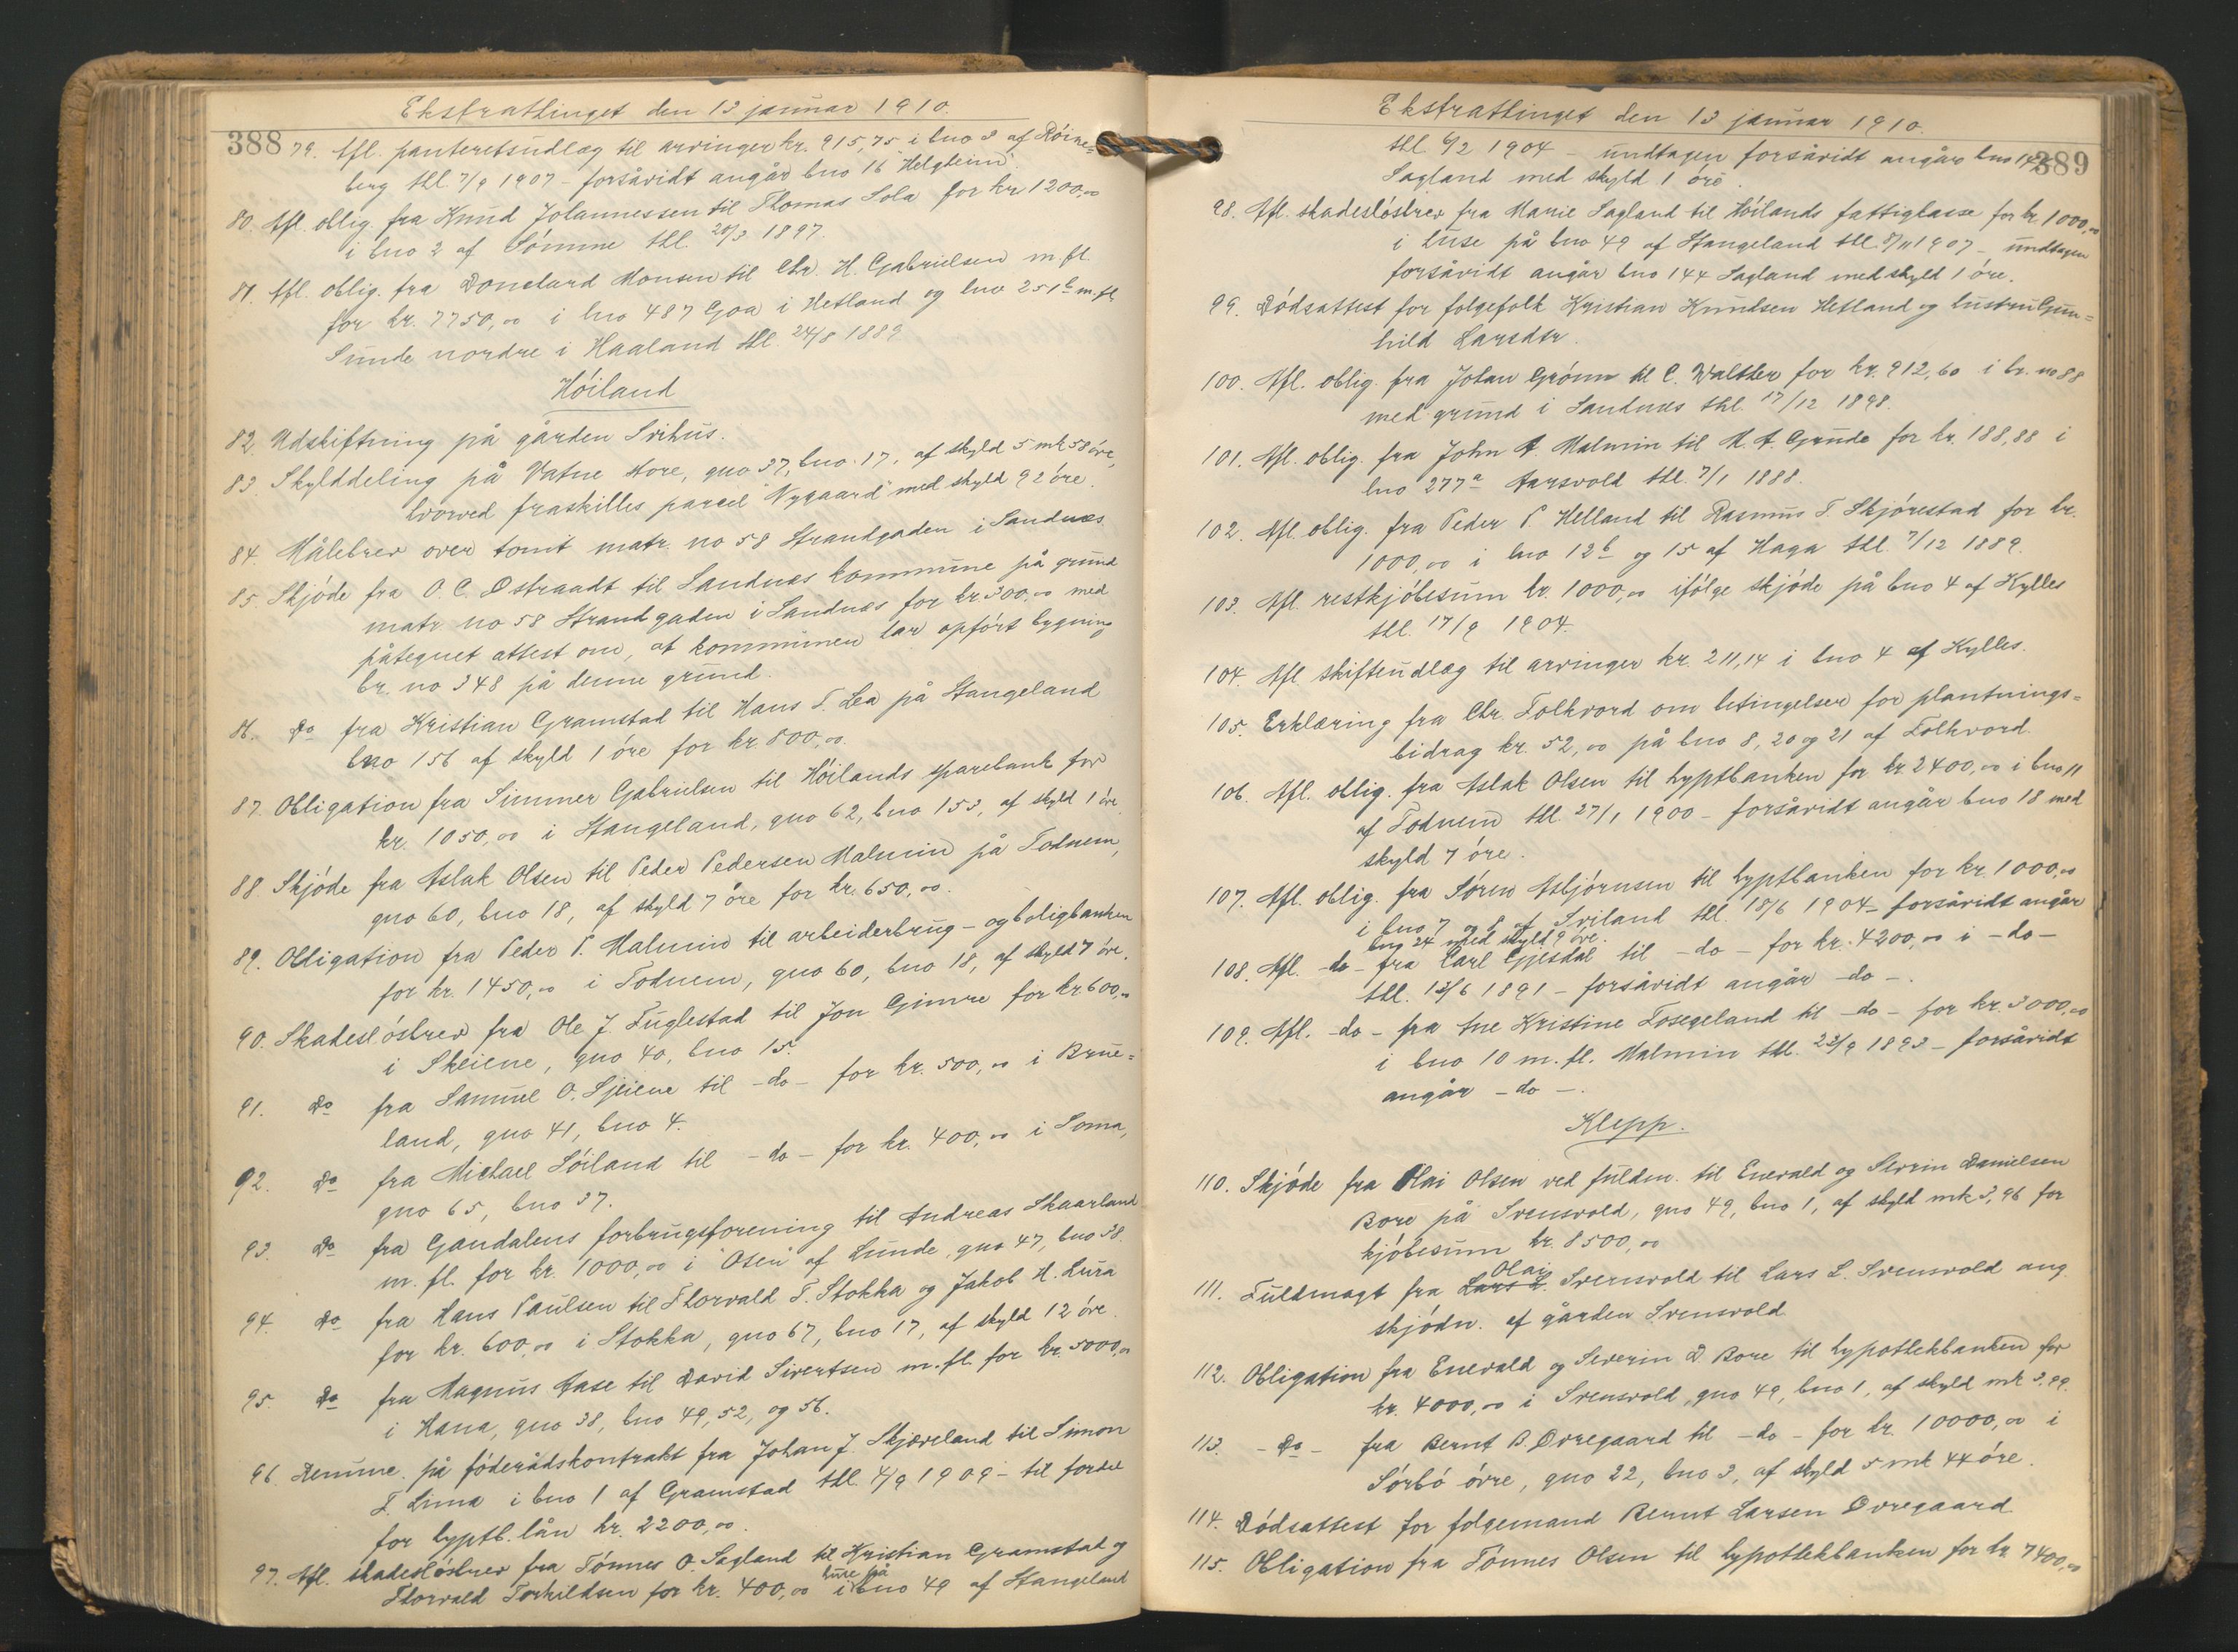 Ekstrathinget den 13 januar 1910.
388
79. Afl. panteretsudlæg til arvinger kr. 915,75 i bno 3 af Röine=
berg thl. 7/9 1907 – forsåvidt angår bno 16 "Helgheim".
80. Afl. oblig. fra Knud Johannessen til Thomas Sola for kr 1200,00
i bno 2 af Sömme thl. 20/3 1897.
81. Afl. oblig. fra Monsen til Chr. H. Gabrielsen m. fl.
for kr. 7750,00 i bno 487 Goa i Hetland og bno 251b m. fl.
Sunde nordre i Haaland thl. 24/8 1889
Höiland
82. Udskiftning på gården Svihus.
83. Skylddeling på Vatne store, gno 37, bno 17, af skyld 5 mk 58 öre,
hvorved fraskilles parcel "Nygaard" med skyld 92 öre.
84. Målebrev over tomt matr. no 58 Strandgaden i Sandnæs
85. Skjöde fra O. C. Østraadt til Sandnæs kommune på grund
matr no 58 Strandgaden i Sandnæs for kr 300,00 med
påtegnet attest om, at kommunen har opfört bygning
br. no 348 på denne grund.
86. Do fra Kristian Gramstad til Hans T. Lea på Stangeland
bno 156 af skyld 1 öre for kr. 800,00.
87. Obligation fra Simmer Gabrielsen til Höilands sparebank for
kr. 1050,00 i Stangeland, gno 62, bno 153, af skyld 1 öre.
88. Skjöde fra Aslak Olsen til Peder Pedersen Malmin på Todnem,
gno 60, bno 18, af skyld 7 öre for kr. 650,00.
89. Obligation fra Peder P. Malmin til arbeiderbrug- og boligbanken
for kr. 1450,00 i Todnem, gno 60, bno 18, af skyld 7 öre.
90. Skadeslösbrev fra Ole J. Fuglestad til Jon Gimre for kr. 600,00
i Skeiene, gno 40, bno 15.
91. Do fra Samuel O. Sjeiene til – do – for kr. 500,00 i Brue=
land, gno 41, bno 4.
92. Do fra Michael Löiland til – do – for kr. 400,00 i Soma,
gno 65, bno 37.
93. Do fra Gandalens forbrugsforening til Andreas Skaarland
m. fl. for kr. 1000,00 i "Osen" af Lunde, gno 47, bno 38.
94. Do fra Hans Paulsen til Thorvald T. Stokka og Jakob H. Lura
for kr. 600,00 i Stokka, gno 67, bno 17, af skyld 12 öre.
95. Do fra Magnus Aase til David Sivertsen m. fl. for kr. 5000,00
i Hana, gno 38, bno 49, 52, og 56.
96. Renunc. på föderådskontrakt fra Johan J. Skjæveland til Simon
T. Lima i bno 1 af Gramstad thl. 4/9 1909 – til fordel
for hyptb. lån kr. 2200,00.
97. Afl. skadeslösbrev fra Tönnes O. Sagland til Kristian Gramstad og
Thorvald Torkildsen for kr. 400,00 i huse på bno 49 af Stangeland
Ekstrathinget den 13 januar 1910.
389
thl. 6/2 1904 – undtagen forsåvidt angår bno 144
Sagland med skyld 1 öre.
98. Afl. skadeslösbrev fra Marie Sagland til Höilands fattigkasse for kr. 1000,00
i huse på bno 49 af Stangeland thl. 8/11 1907 – undtagen
forsåvidt angår bno 144 Sagland med skyld 1 öre.
99. Dödsattest for folgefolk Kristian Knudsen Hetland og hustru Gun=
hild Larsdtr.
100. Afl. oblig. fra Johan Grönn til C. Walther for kr. 912,60 i br. no 88
med grund i Sandnæs thl. 17/12 1898.
101. Afl. oblig. fra John A. Malmin til M. A. Grude for kr. 188,88 i
bno 277a Aarsvold thl. 7/1 1888.
102. Afl. oblig. fra Peder P. Helland til Rasmus T. Skjörestad for kr.
1000,00 i bno 12b og 15 af Haga thl. 7/12 1889.
103. Afl. restkjöbesum kr. 1000,00 ifölge skjöde på bno 4 af Kylles
thl. 17/9 1904.
104. Afl. skifteudlæg til arvinger kr. 211,14 i bno 4 af Kylles.
105. Erklæring fra Chr. Folkvord om betingelser for plantnings=
bidrag kr. 52,00 på bno 8, 20 og 21 af Folkvord.
106. Afl. oblig. fra Aslak Olsen til hyptbanken for kr. 2400,00 i bno 11
af Todnem thl. 27/1 1900 – forsåvidt angår bno 18 med
skyld 7 öre.
107. Afl. oblig. fra Sören Asbjörnsen til hyptbanken for kr. 1000,00
i bno 7 og 8 af Sviland thl. 18/6 1904 – forsåvidt angår
bno 24 med skyld 9 öre.
108. Afl. – do – fra Carl Gjesdal til – do – for kr. 4200,00 i – do –
thl. 13/6 1891 – forsåvidt angår – do –.
109. Afl. – do – fra Ane Kristine Fosegeland til – do – for kr. 3000,00
i bno 10 m. fl. Malmin thl. 23/9 1893 – forsåvidt
angår – do –.
Klepp.
110. Skjöde fra Olai Olsen ved fuldm. til Enevald og Sevrin Danielsen
Bore på Svensvold, gno 49, bno 1, af skyld mk 3,96 for
kjöbesum kr. 8500,00
111. Fuldmagt fra Lars L. Olai Svensvold til Lars L. Svensvold ang.
skjödn. af gården Svensvold
112. Obligation fra Enevald og Severin D Bore til hypothekbanken for
kr. 4000,00 i Svensvold, gno 49, bno 1, af skyld mk 3,99.
113. – Do – fra Bernt B. Øvregaard til – do – for kr. 10000,00 i
Sörbö övre, gno 22, bno 3, af skyld 5 mk 44 öre.
114. Dödsattest for folgemand Bernt Larsen Øvregaard
115. Obligation fra Tönnes Olsen til hypothekbanken for kr. 7400,00